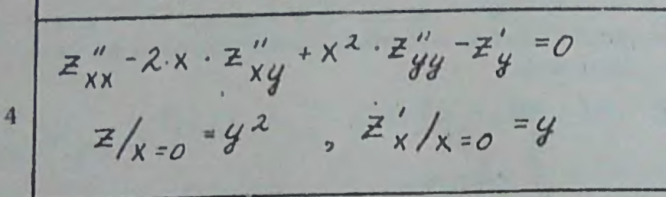 z''xx - 2·x · z''xy + x² · z''yy - z'y = 0
4
z/x=0 = y² , z'x/x=0 = y